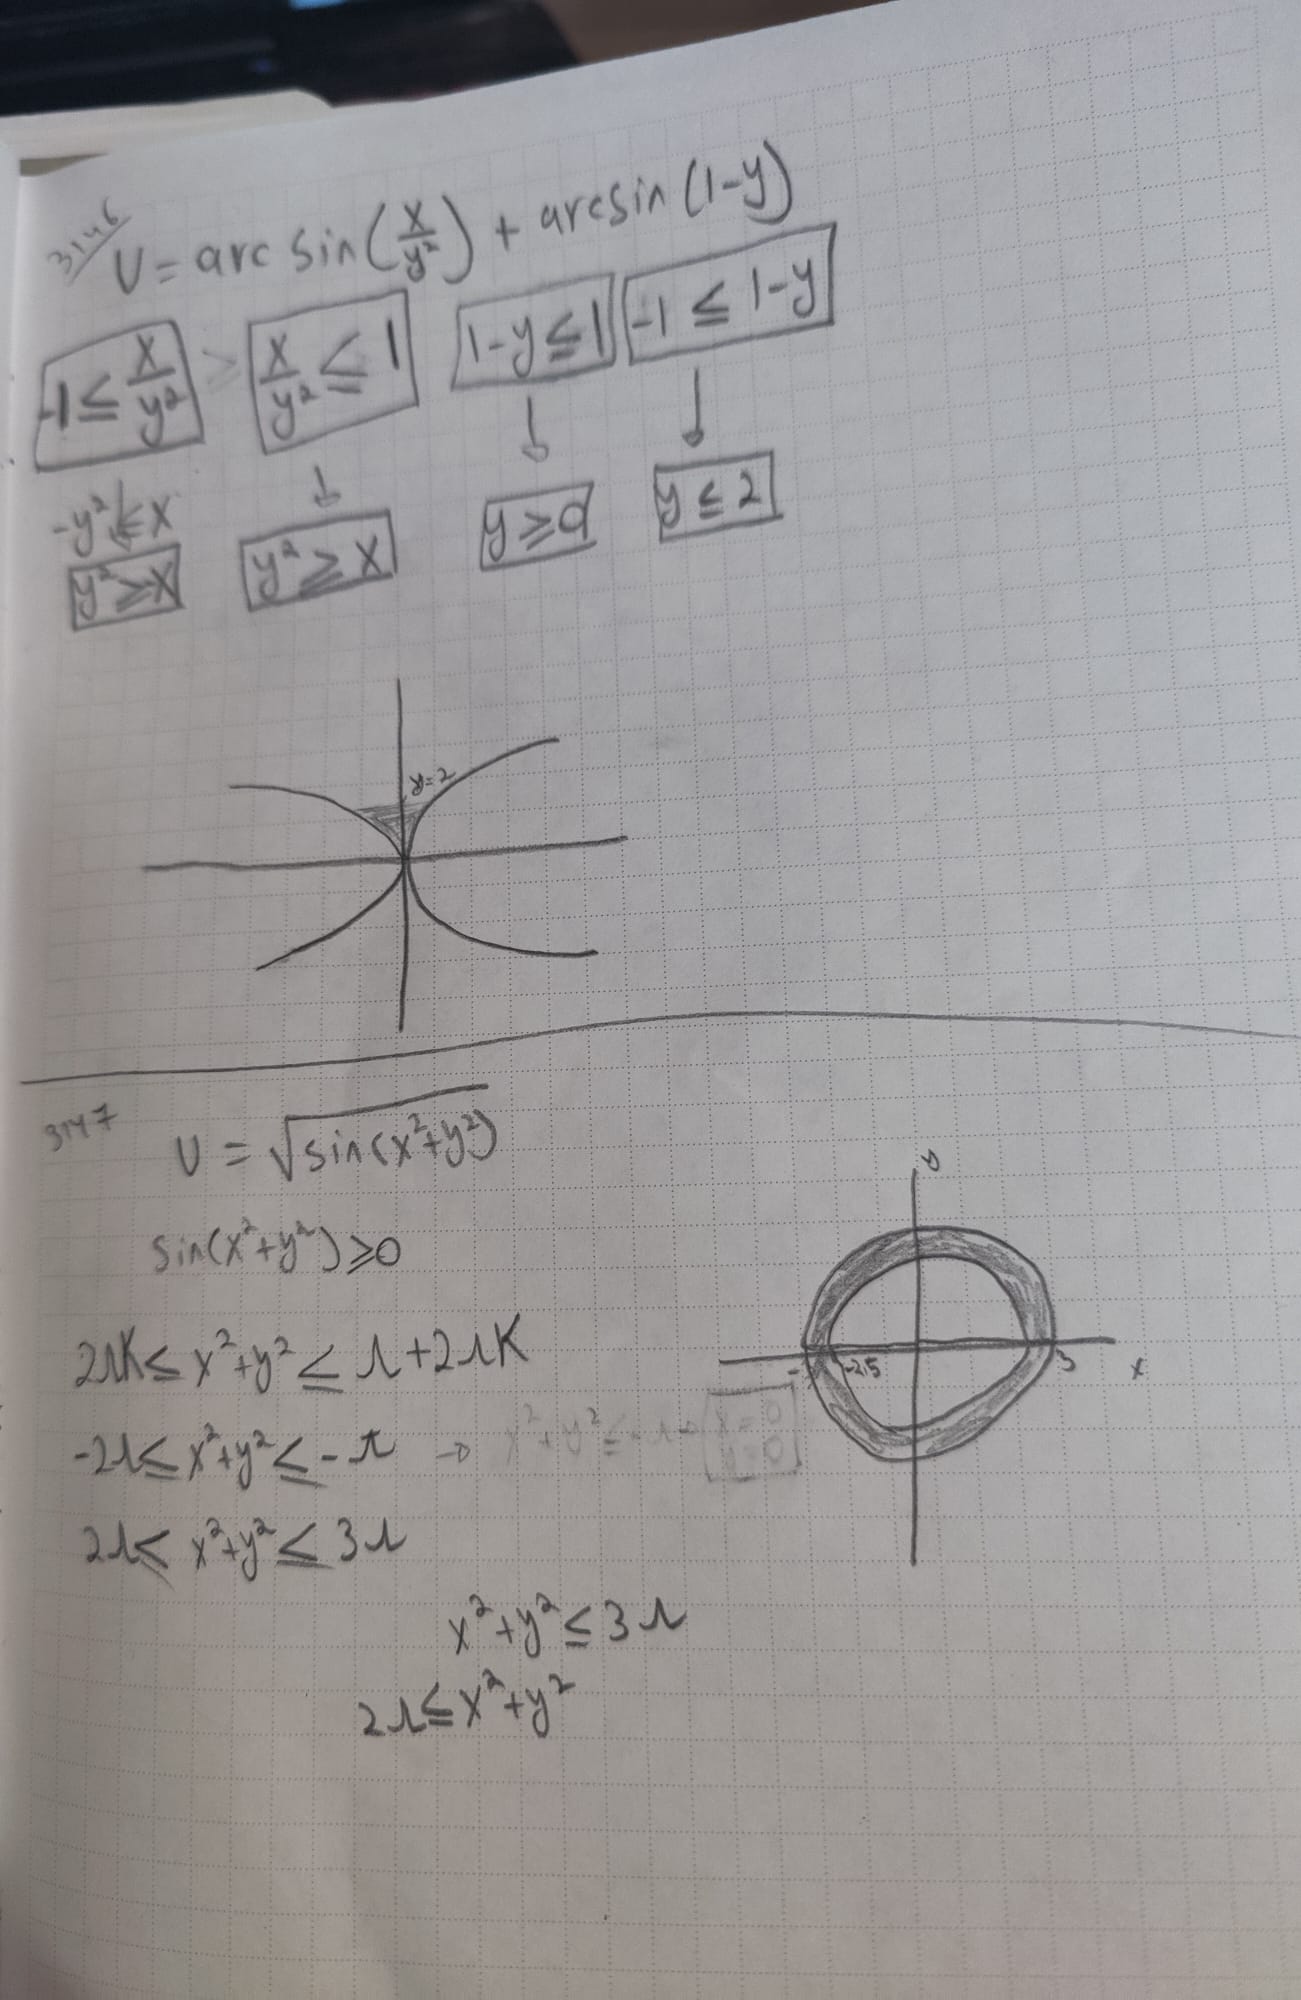 3146
U = arcsin(x/y²) + arcsin(1-y)
-1 ≤ x/y² > x/y² ≤ 1 1-y ≤ 1 -1 ≤ 1-y
-y² ≤ x
y² ≥ x y² ≥ x y ≥ 0 y ≤ 2
y=2
3147
U = √sin(x²+y²)
sin(x²+y²) ≥ 0
2πK ≤ x²+y² ≤ π+2πK
-2π ≤ x²+y² ≤ -π → x²+y² ≤ -π → x=0
y=0
2π ≤ x²+y² ≤ 3π
x²+y² ≤ 3π
2π ≤ x²+y²
y
-2,5 3
x